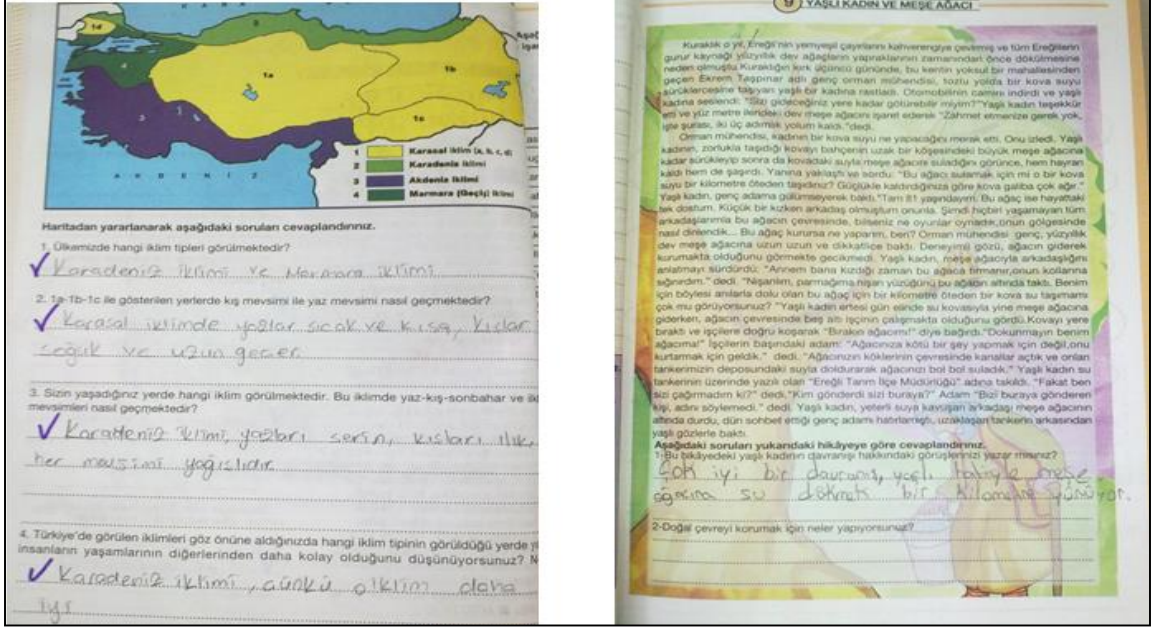 KARA
1d
2
Aşağ
işar
4
1a
1b
3
1c
AKDENİZ
1 Karasal iklim (a, b, c, d)
2 Karadeniz iklimi
3 Akdeniz iklimi
4 Marmara (Geçiş) iklimi
Haritadan yararlanarak aşağıdaki soruları cevaplandırınız.
1. Ülkemizde hangi iklim tipleri görülmektedir?
Karadeniz iklimi ve Marmara iklimi
2. 1a-1b-1c ile gösterilen yerlerde kış mevsimi ile yaz mevsimi nasıl geçmektedir?
Karasal iklimde yazlar sıcak ve kısa, kışlar
soğuk ve uzun geçer.
3. Sizin yaşadığınız yerde hangi iklim görülmektedir. Bu iklimde yaz-kış-sonbahar ve ilk
mevsimleri nasıl geçmektedir?
Karadeniz iklimi, yazları serin, kışları ılık,
her mevsimi yağışlıdır.
4. Türkiye'de görülen iklimleri göz önüne aldığınızda hangi iklim tipinin görüldüğü yerde y
insanların yaşamlarının diğerlerinden daha kolay olduğunu düşünüyorsunuz? N
Karadeniz iklimi, çünkü o iklim daha
iyi
9 YAŞLI KADIN VE MEŞE AĞACI
Kuraklık o yıl, Ereğli'nin yemyeşil çayırlarını kahverengiye çevirmiş ve tüm Ereğlilerin
gurur kaynağı yüzyıllık dev ağaçların yapraklarının zamanından önce dökülmesine
neden olmuştu. Kuraklığın kırk üçüncü gününde, bu kentin yoksul bir mahallesinden
geçen Ekrem Taşpınar adlı genç orman mühendisi, tozlu yolda bir kova suyu
sürüklercesine taşıyan yaşlı bir kadına rastladı. Otomobilinin camını indirdi ve yaşlı
kadına seslendi: "Sizi gideceğiniz yere kadar götürebilir miyim?" Yaşlı kadın teşekkür
etti ve yüz metre ilerideki dev meşe ağacını işaret ederek "Zahmet etmenize gerek yok,
işte şurası, iki üç adımlık yolum kaldı." dedi.
Orman mühendisi, kadının bir kova suyu ne yapacağını merak etti. Onu izledi. Yaşlı
kadının, zorlukla taşıdığı kovayı bahçenin uzak bir köşesindeki büyük meşe ağacına
kadar sürükleyip sonra da kovadaki suyla meşe ağacını suladığını görünce, hem hayran
kaldı hem de şaşırdı. Yanına yaklaştı ve sordu: "Bu ağacı sulamak için mi o bir kova
suyu bir kilometre öteden taşıdınız? Güçlükle kaldırdığınıza göre kova galiba çok ağır."
Yaşlı kadın, genç adama gülümseyerek baktı. "Tam 81 yaşındayım. Bu ağaç ise hayattaki
tek dostum. Küçük bir kızken arkadaş olmuştum onunla. Şimdi hiçbiri yaşamayan tüm
arkadaşlarımla bu ağacın çevresinde, bilseniz ne oyunlar oynadık, onun gölgesinde
nasıl dinlendik... Bu ağaç kurursa ne yaparım, ben? Orman mühendisi genç, yüzyıllık
dev meşe ağacına uzun uzun ve dikkatlice baktı. Deneyimli gözü, ağacın giderek
kurumakta olduğunu görmekte gecikmedi. Yaşlı kadın, meşe ağacıyla arkadaşlığını
anlatmayı sürdürdü; "Annem bana kızdığı zaman bu ağaca tırmanır, onun kollarına
sığınırdım." dedi. "Nişanlım, parmağıma nişan yüzüğünü bu ağacın altında taktı. Benim
için böylesi anılarla dolu olan bu ağaç için bir kilometre öteden bir kova su taşımamı
çok mu görüyorsunuz? "Yaşlı kadın ertesi gün elinde su kovasıyla yine meşe ağacına
giderken, ağacın çevresinde beş altı işçinin çalışmakta olduğunu gördü. Kovayı yere
bıraktı ve işçilere doğru koşarak "Bırakın ağacımı!" diye bağırdı. "Dokunmayın benim
ağacıma!" İşçilerin başındaki adam: "Ağacınıza kötü bir şey yapmak için değil, onu
kurtarmak için geldik." dedi. "Ağacınızın köklerinin çevresinde kanallar açtık ve onları
tankerimizin deposundaki suyla doldurarak ağacınızı bol bol suladık." Yaşlı kadın su
tankerinin üzerinde yazılı olan "Ereğli Tarım İlçe Müdürlüğü" adına takıldı. "Fakat ben
sizi çağırmadım ki?" dedi, "Kim gönderdi sizi buraya?" Adam "Bizi buraya gönderen
kişi, adını söylemedi." dedi. Yaşlı kadın, yeterli suya kavuşan arkadaşı meşe ağacının
altında durdu, dün sohbet ettiği genç adamı hatırlamıştı, uzaklaşan tankerin arkasından
yaşlı gözlerle baktı.
Aşağıdaki soruları yukarıdaki hikâyeye göre cevaplandırınız.
1-Bu hikâyedeki yaşlı kadının davranışı hakkındaki görüşlerinizi yazar mısınız?
Çok iyi bir davranış, yaşlı haliyle meşe
ağacına su dökmek bir kilometre yürüyor.
2-Doğal çevreyi korumak için neler yapıyorsunuz?